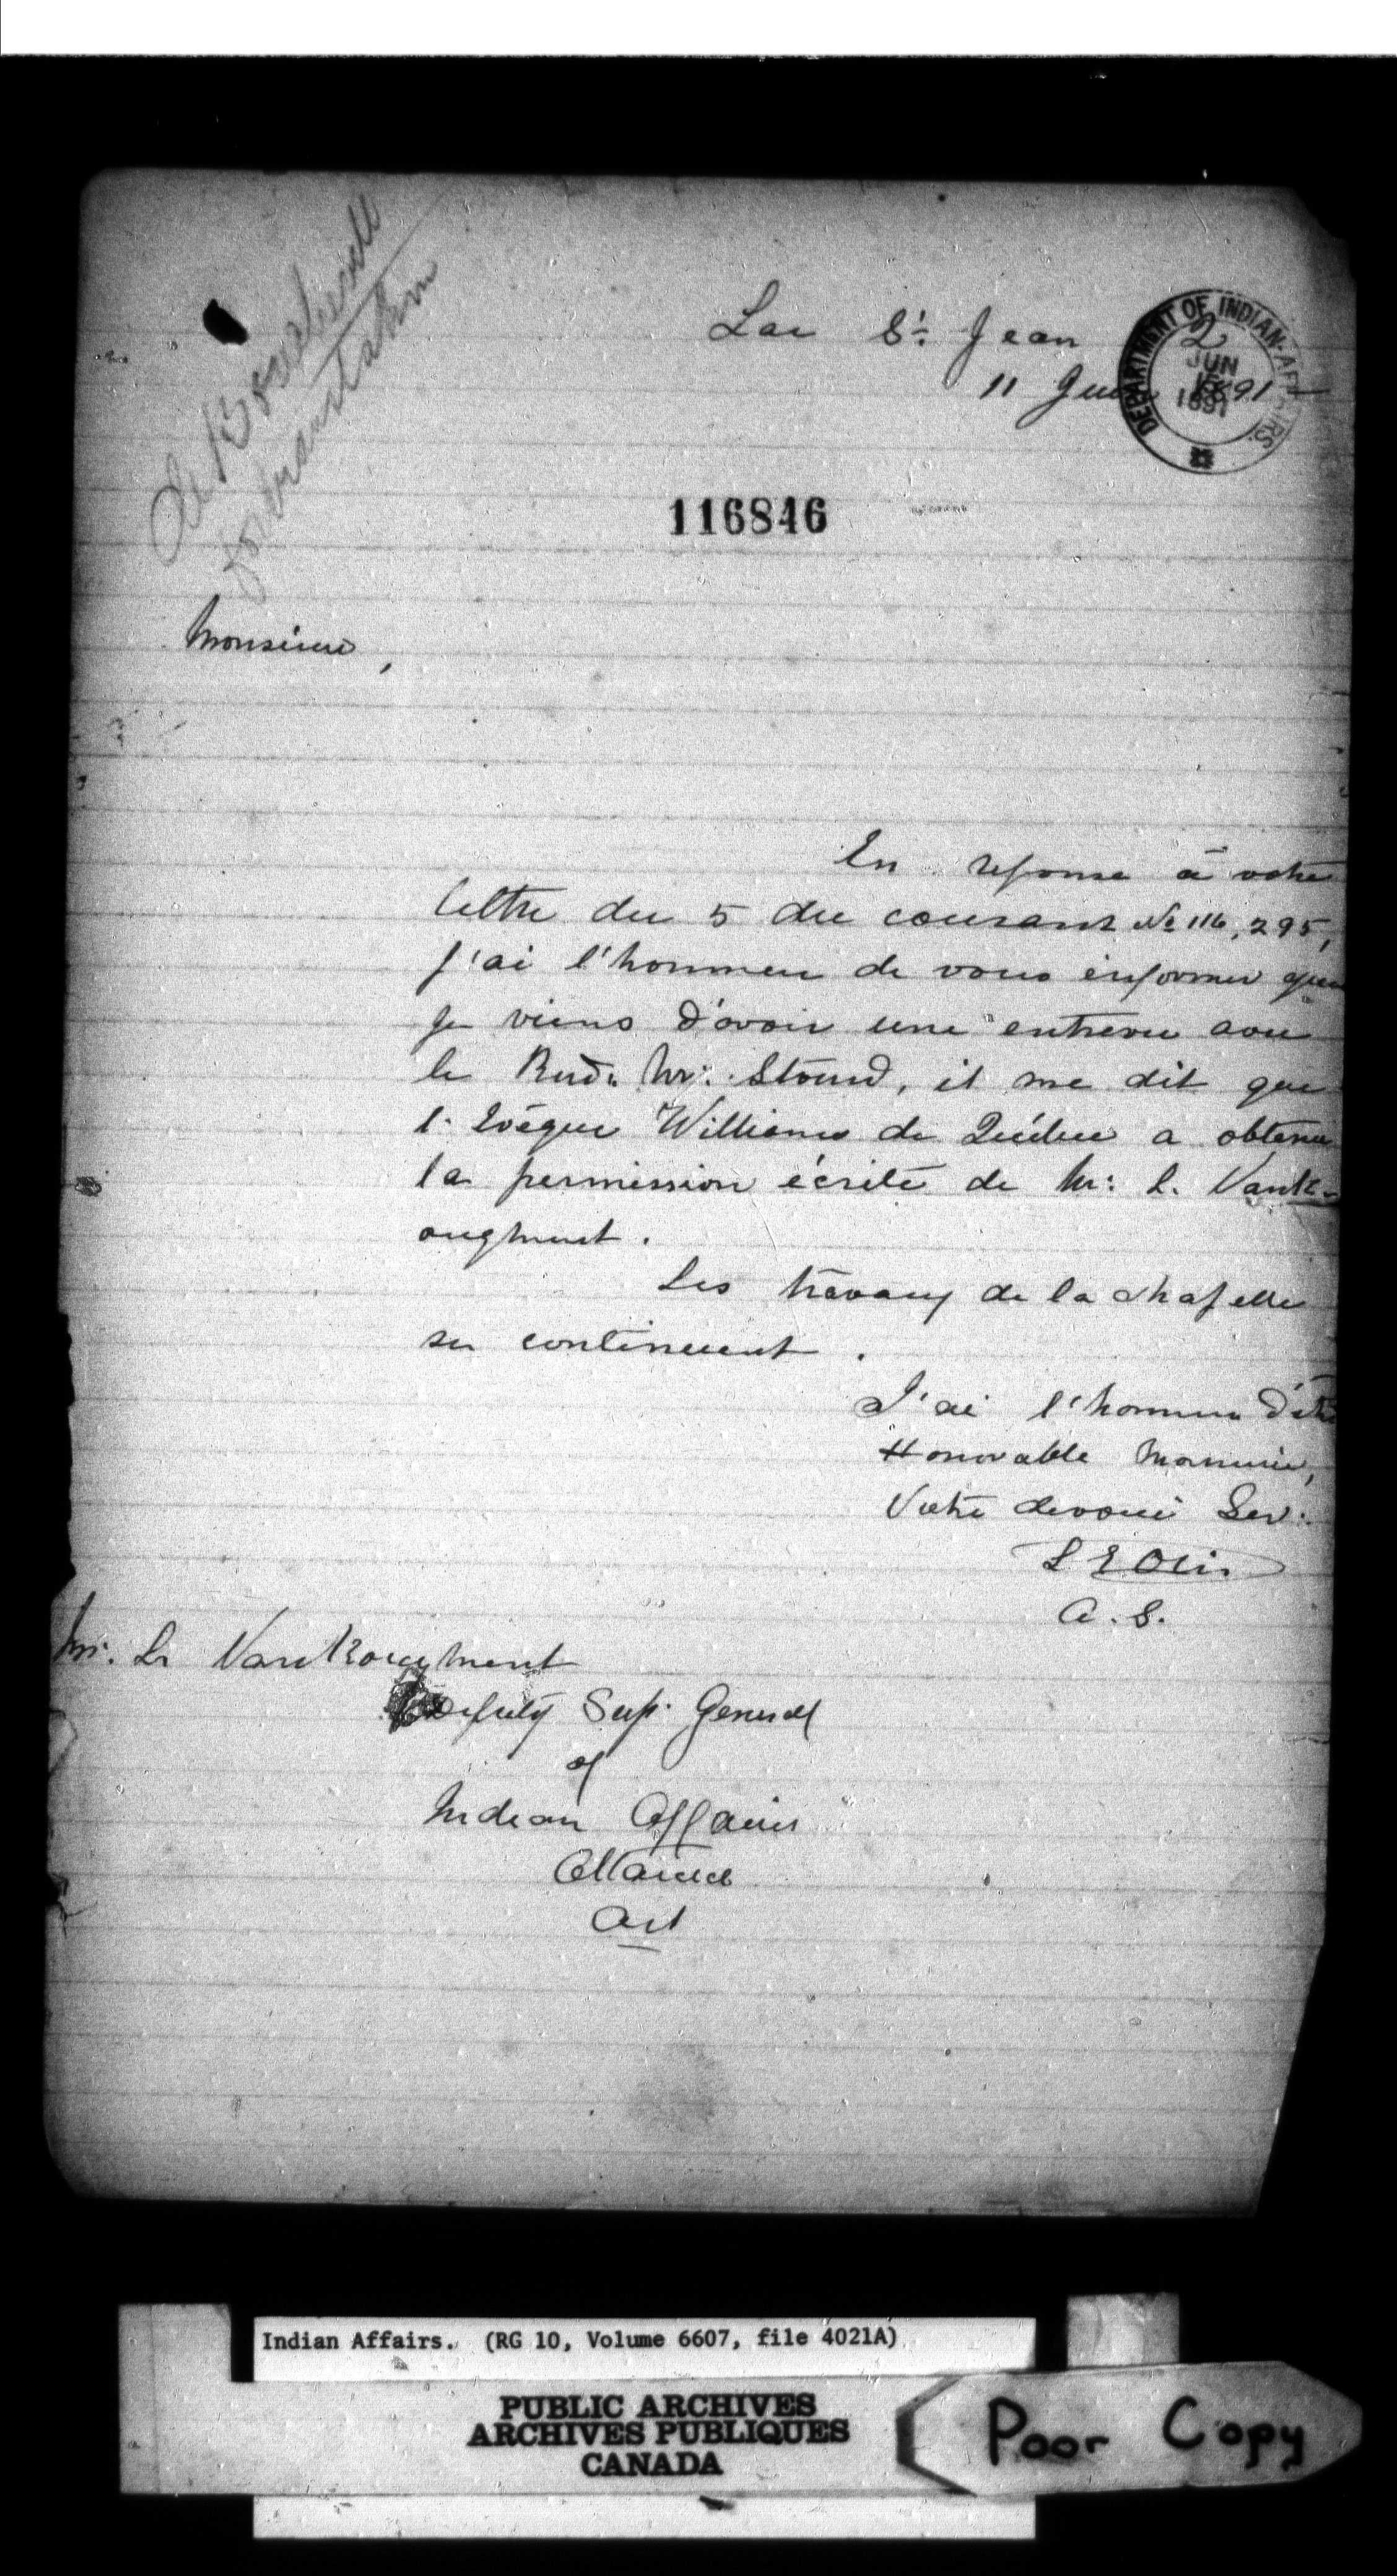 De Boucherville
for translation
Lac St. Jean
11 Juin 1891
DEPARTMENT OF INDIAN AFFAIRS.
2
JUN
15
1891
116846
Monsieur,
En reponse à votre
lettre du 5 du courant No 116,295,
j'ai l'honneur de vous informer que
je viens d'avoir une entrevue avec
le Revd. Mr. Stound, il me dit que
l'Evêque Williams de Québec a obtenu
la permission écrite de Mr. L. Vank-
oughnest.
Les travaux de la chapelle
se continuent.
J'ai l'honneur d'être
Honorable Monsieur,
Votre devoué Ser.
L E Otis
A. S.
Mr. L. VanKoughnent
Deputy Sup. General
of
Indian Affairs
Ottawa
Ont
Indian Affairs. (RG 10, Volume 6607, file 4021A)
PUBLIC ARCHIVES
ARCHIVES PUBLIQUES
CANADA
Poor Copy